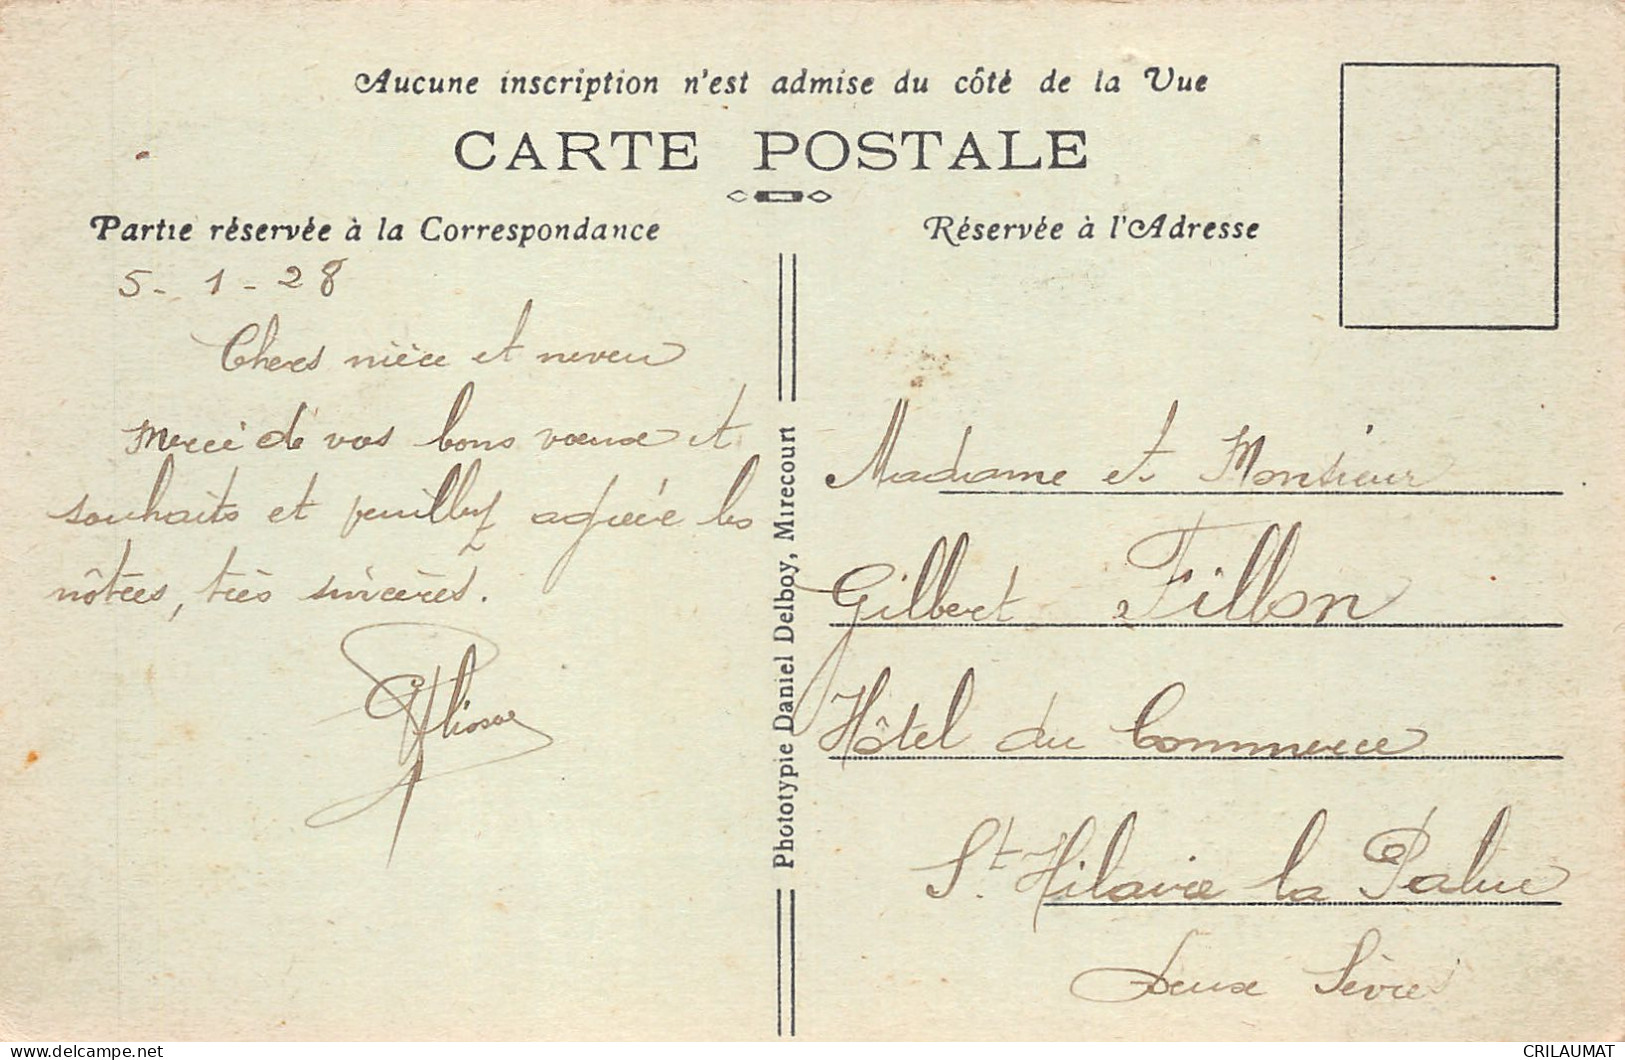 Aucune inscription n'est admise du côté de la Vue
CARTE POSTALE
Partie réservée à la Correspondance
Réservée à l'Adresse
5-1-28
Chers nièce et neveu
Merci de vos bons vœux et
souhaits et veuillez agréer les
nôtres, très sincères.
Madame et Monsieur
Gilbert Fillon
Hôtel du Commerce
St Hilaire la Palue
Deux Sèvres
Phototypie Daniel Delboy, Mirecourt
delcampe.net
CRILAUMAT